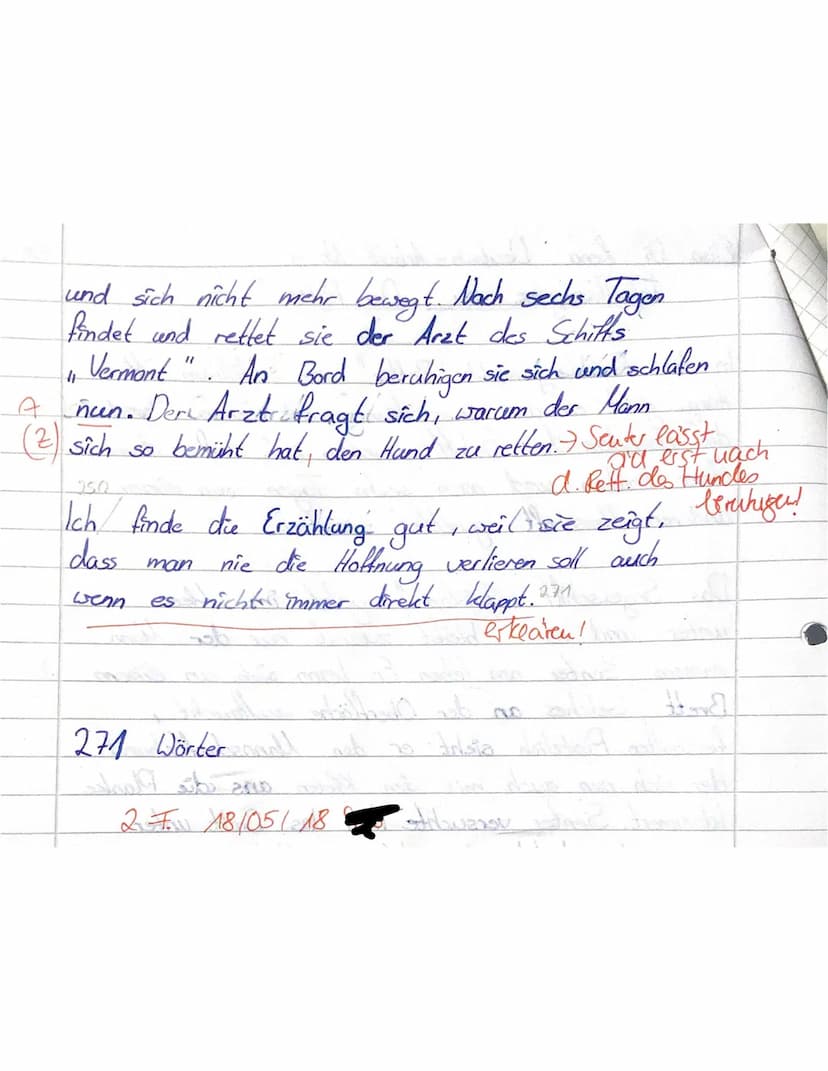 und sich nicht mehr bewegt. Nach sechs Tagen
findet und rettet sie der Arzt des Schiffs
„Vermont". An Bord beruhigen sie sich und schlafen
A nun. Der Arzt fragt sich, warum der Mann
(Z) sich so bemüht hat, den Hund zu retten. → Senter lässt
erst nach
d. Rett. des Hundes
beruhigen!
250
Ich finde die Erzählung gut, weil sie zeigt,
dass man nie die Hoffnung verlieren soll auch
wenn es nicht immer direkt klappt. 271
erklären!
271 Wörter
2 F. 18/05/18